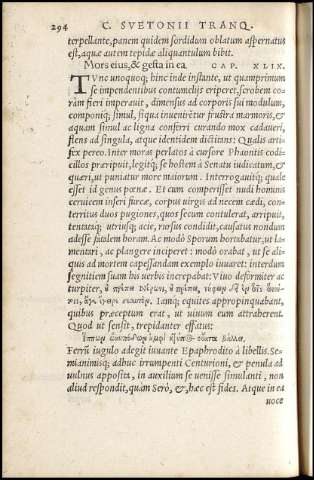 294 C. SVETONII TRANQ.
terpellante, panem quidem sordidum oblatum aspernatus
est, aquæ autem tepidæ aliquantulum bibit.
Mors eius, & gesta in ea CAP. XLIX.
TVnc unoquoq; hinc inde instante, ut quamprimum
se impendentibus contumelijs eriperet, scrobem co-
ràm fieri imperauit, dimensus ad corporis sui modulum,
componiq; simul, siqua inuenirētur frustra marmoris, &
aquam simul ac ligna conferri curando mox cadaueri,
flens ad singula, atque identidem dictitans: Qualis arti-
fex pereo. Inter moras perlatos à cursore Phaonis codi-
cillos præripuit, legitq; se hostem à Senatu iudicatum, &
quæri, ut puniatur more maiorum. Interrogauitq; quale
esset id genus pœnæ. Et cum comperisset nudi hominis
ceruicem inseri furcæ, corpus uirgis ad necem cædi, con-
territus duos pugiones, quos secum contulerat, arripuit,
tentataq; utriusq; acie, rursus condidit, causatus nondum
adesse fatalem horam. Ac modò Sporum hortabatur, ut la-
mentari, ac plangere inciperet: modò orabat, ut se ali-
quis ad mortem capessendam exemplo iuuaret: interdum
segnitiem suam his uerbis increpabat: Viuo deformiter ac
turpiter, οὐ πρέπει Νέρωνι, οὐ πρέπει, νήφειν δεῖ ἐν τοῖς τοιού-
τοις, ἄγε ἔγειρε σεαυτόν. Iamq; equites appropinquabant,
quibus præceptum erat, ut uiuum eum attraherent.
Quod ut sensit, trepidanter effatus:
Ἵππων ὠκυπόδων ἀμφὶ κτύπος οὔατα βάλλει.
Ferrū iugulo adegit iuuante Epaphrodito à libellis. Se-
mianimisq; adhuc irrumpenti Centurioni, & penula ad
uulnus apposita, in auxilium se uenisse simulanti, non
aliud respondit, quàm Serò, &, hæc est fides. Atque in ea
uoce